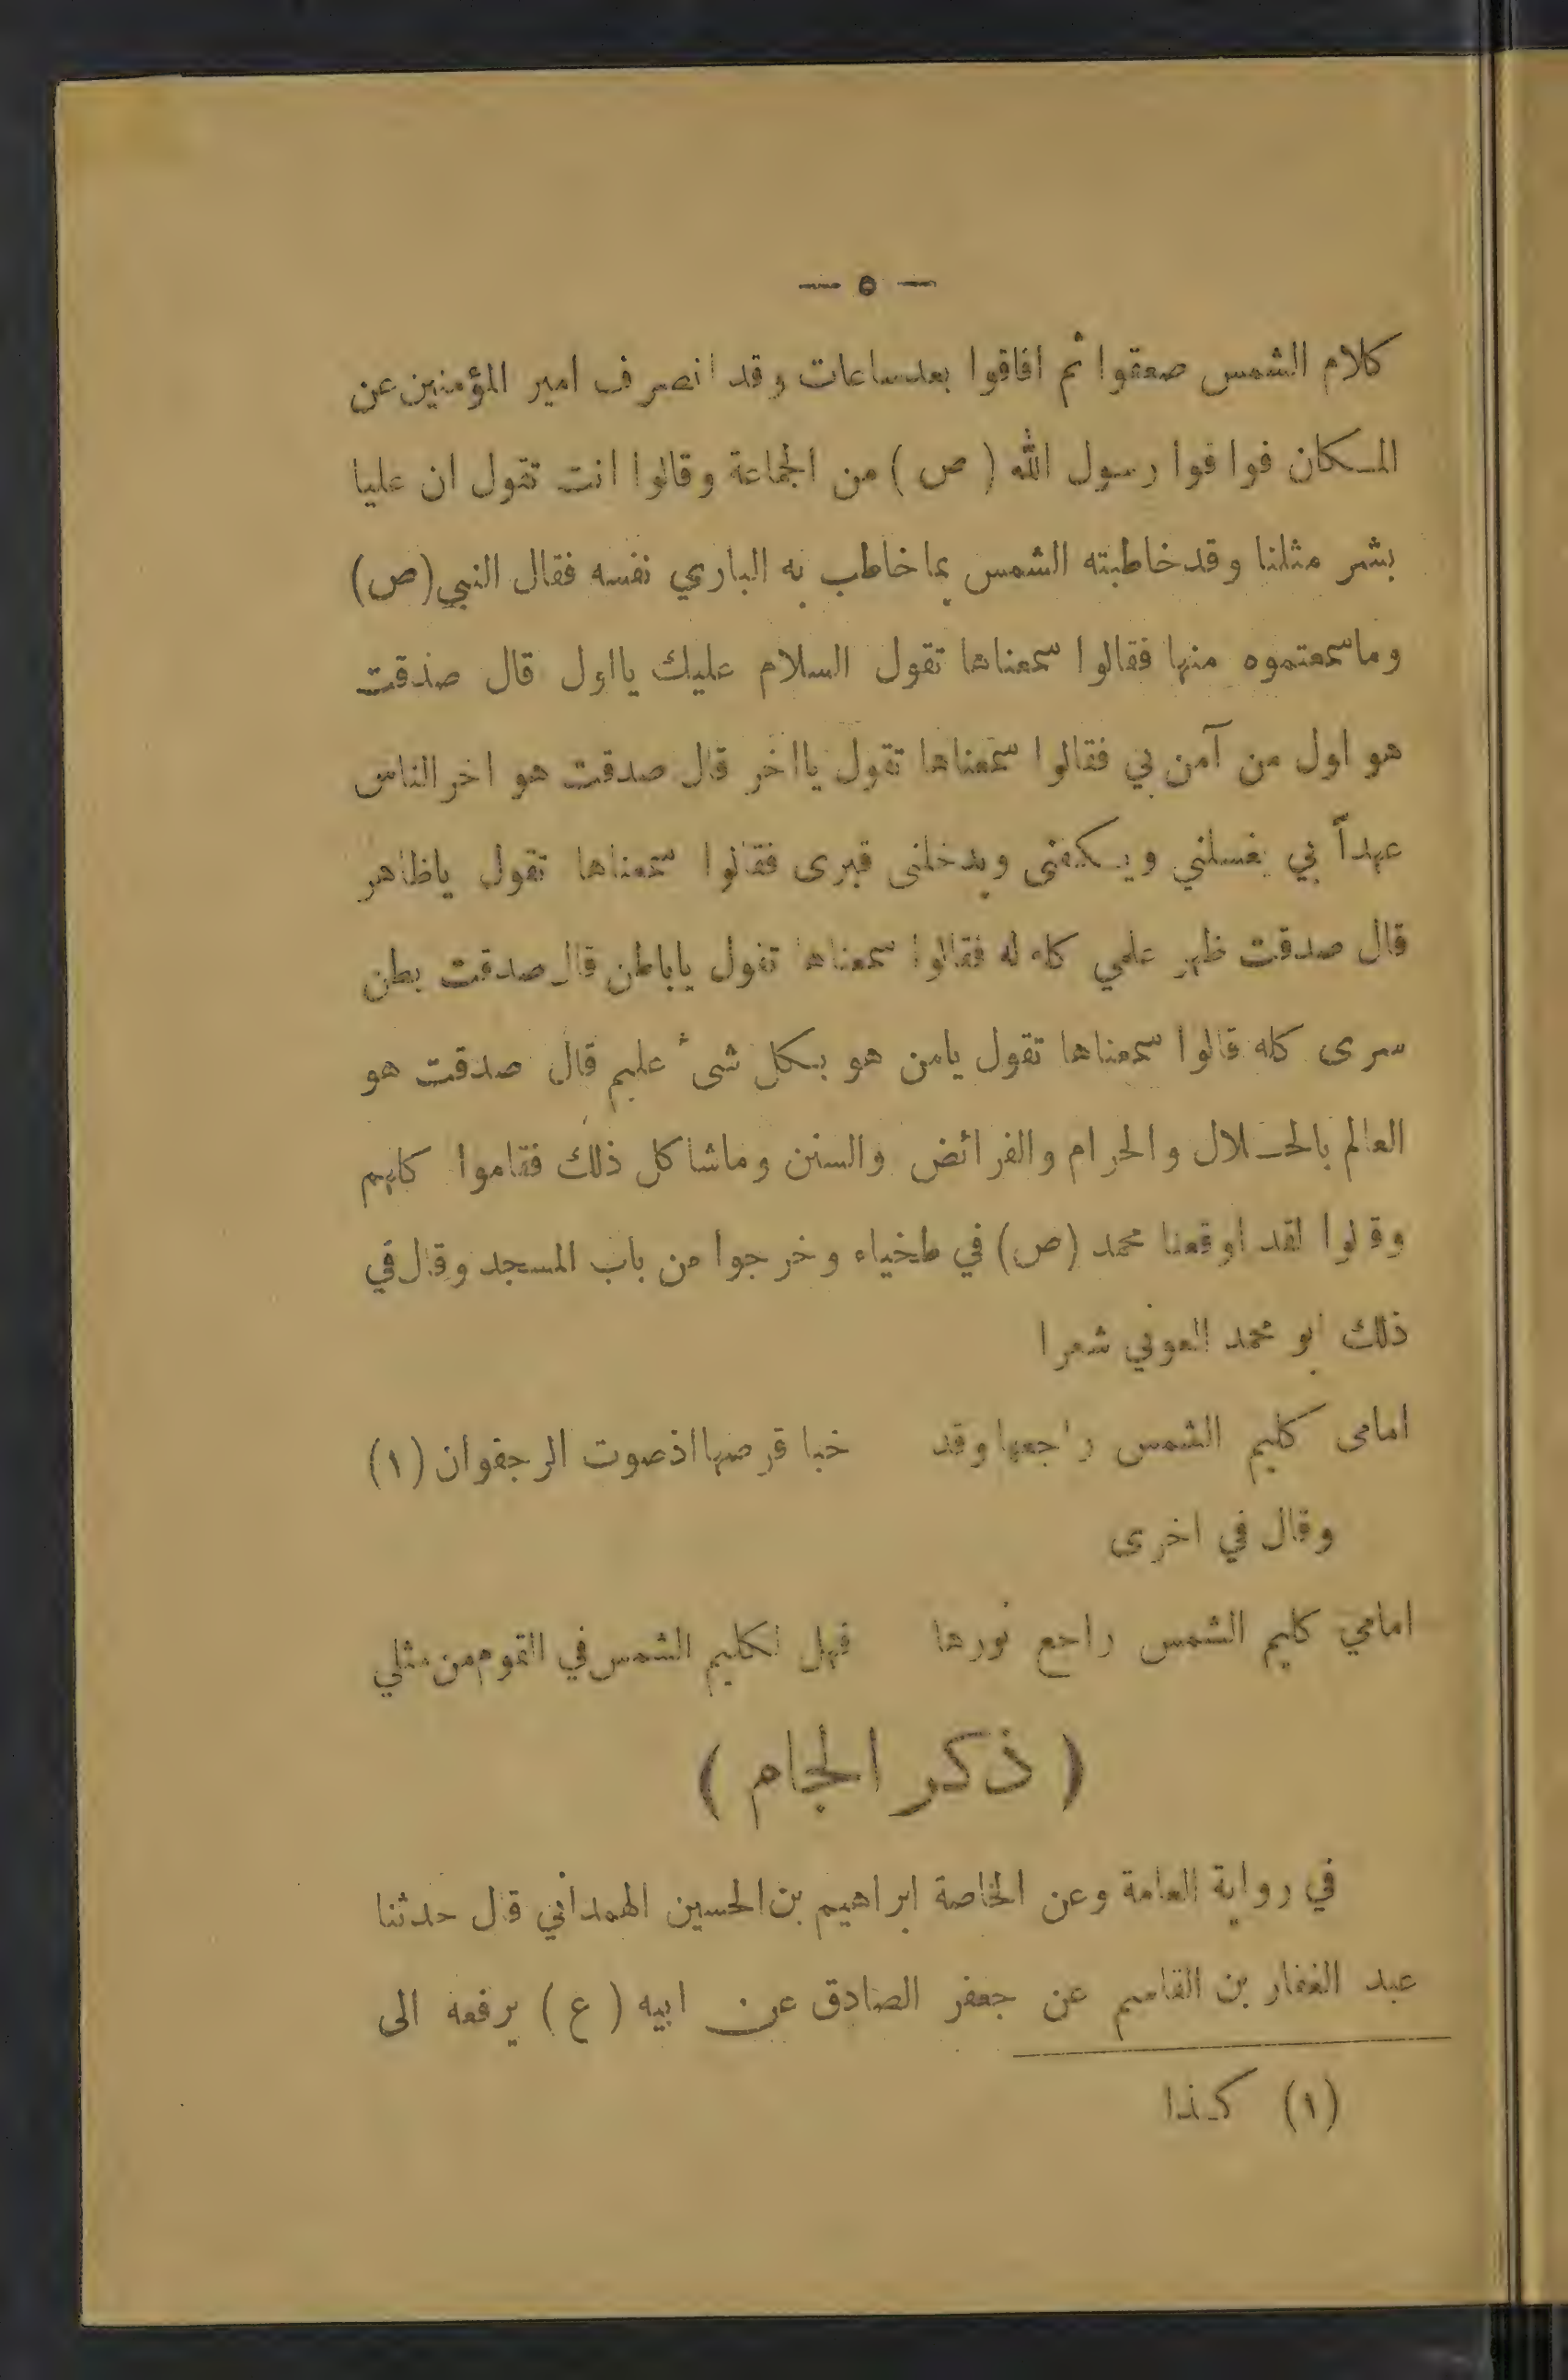 — ٥ —
كلام الشمس صعقوا ثم افاقوا بعدساعات وقد انصرف امير المؤمنين عن
المكان فوافوا رسول الله ( ص ) من الجماعة وقالوا انت تقول ان عليا
بشر مثلنا وقد خاطبته الشمس بما خاطب به الباري نفسه فقال النبي (ص)
وما سمعتموه منها فقالوا سمعناها تقول السلام عليك يااول قال صذقت
هو اول من آمن بي فقالوا سمعناها تقول يااخر قال صدقت هو اخر الناس
عهداً بي يغسلني ويكفنى ويدخلنى قبرى فقالوا سمعناها تقول ياظاهر
قال صدقت ظهر علمي كله له فقالوا سمعناها تقول ياباطن قال صدقت بطن
سرى كله قالوا سمعناها تقول يامن هو بكل شىء عليم قال صدقت هو
العالم بالحلال والحرام والفرائض والسنن وماشاكل ذلك فقاموا كلهم
وقالوا لقد اوقعنا محمد (ص) في طخياء وخرجوا من باب المسجد وقال في
ذلك ابو محمد العوني شعرا
امامى كليم الشمس راجعها وقد خبا قرصها اذصوت الرجفوان (١)
وقال في اخرى
امامي كليم الشمس راجع نورها فهل لكليم الشمس في القوم من مثلي
( ذكر الجام )
في رواية العامة وعن الخاصة ابراهيم بن الحسين الهمداني قال حدثنا
عبد الغفار بن القاسم عن جعفر الصادق عن ابيه ( ع ) يرفعه الى
(١) كذا